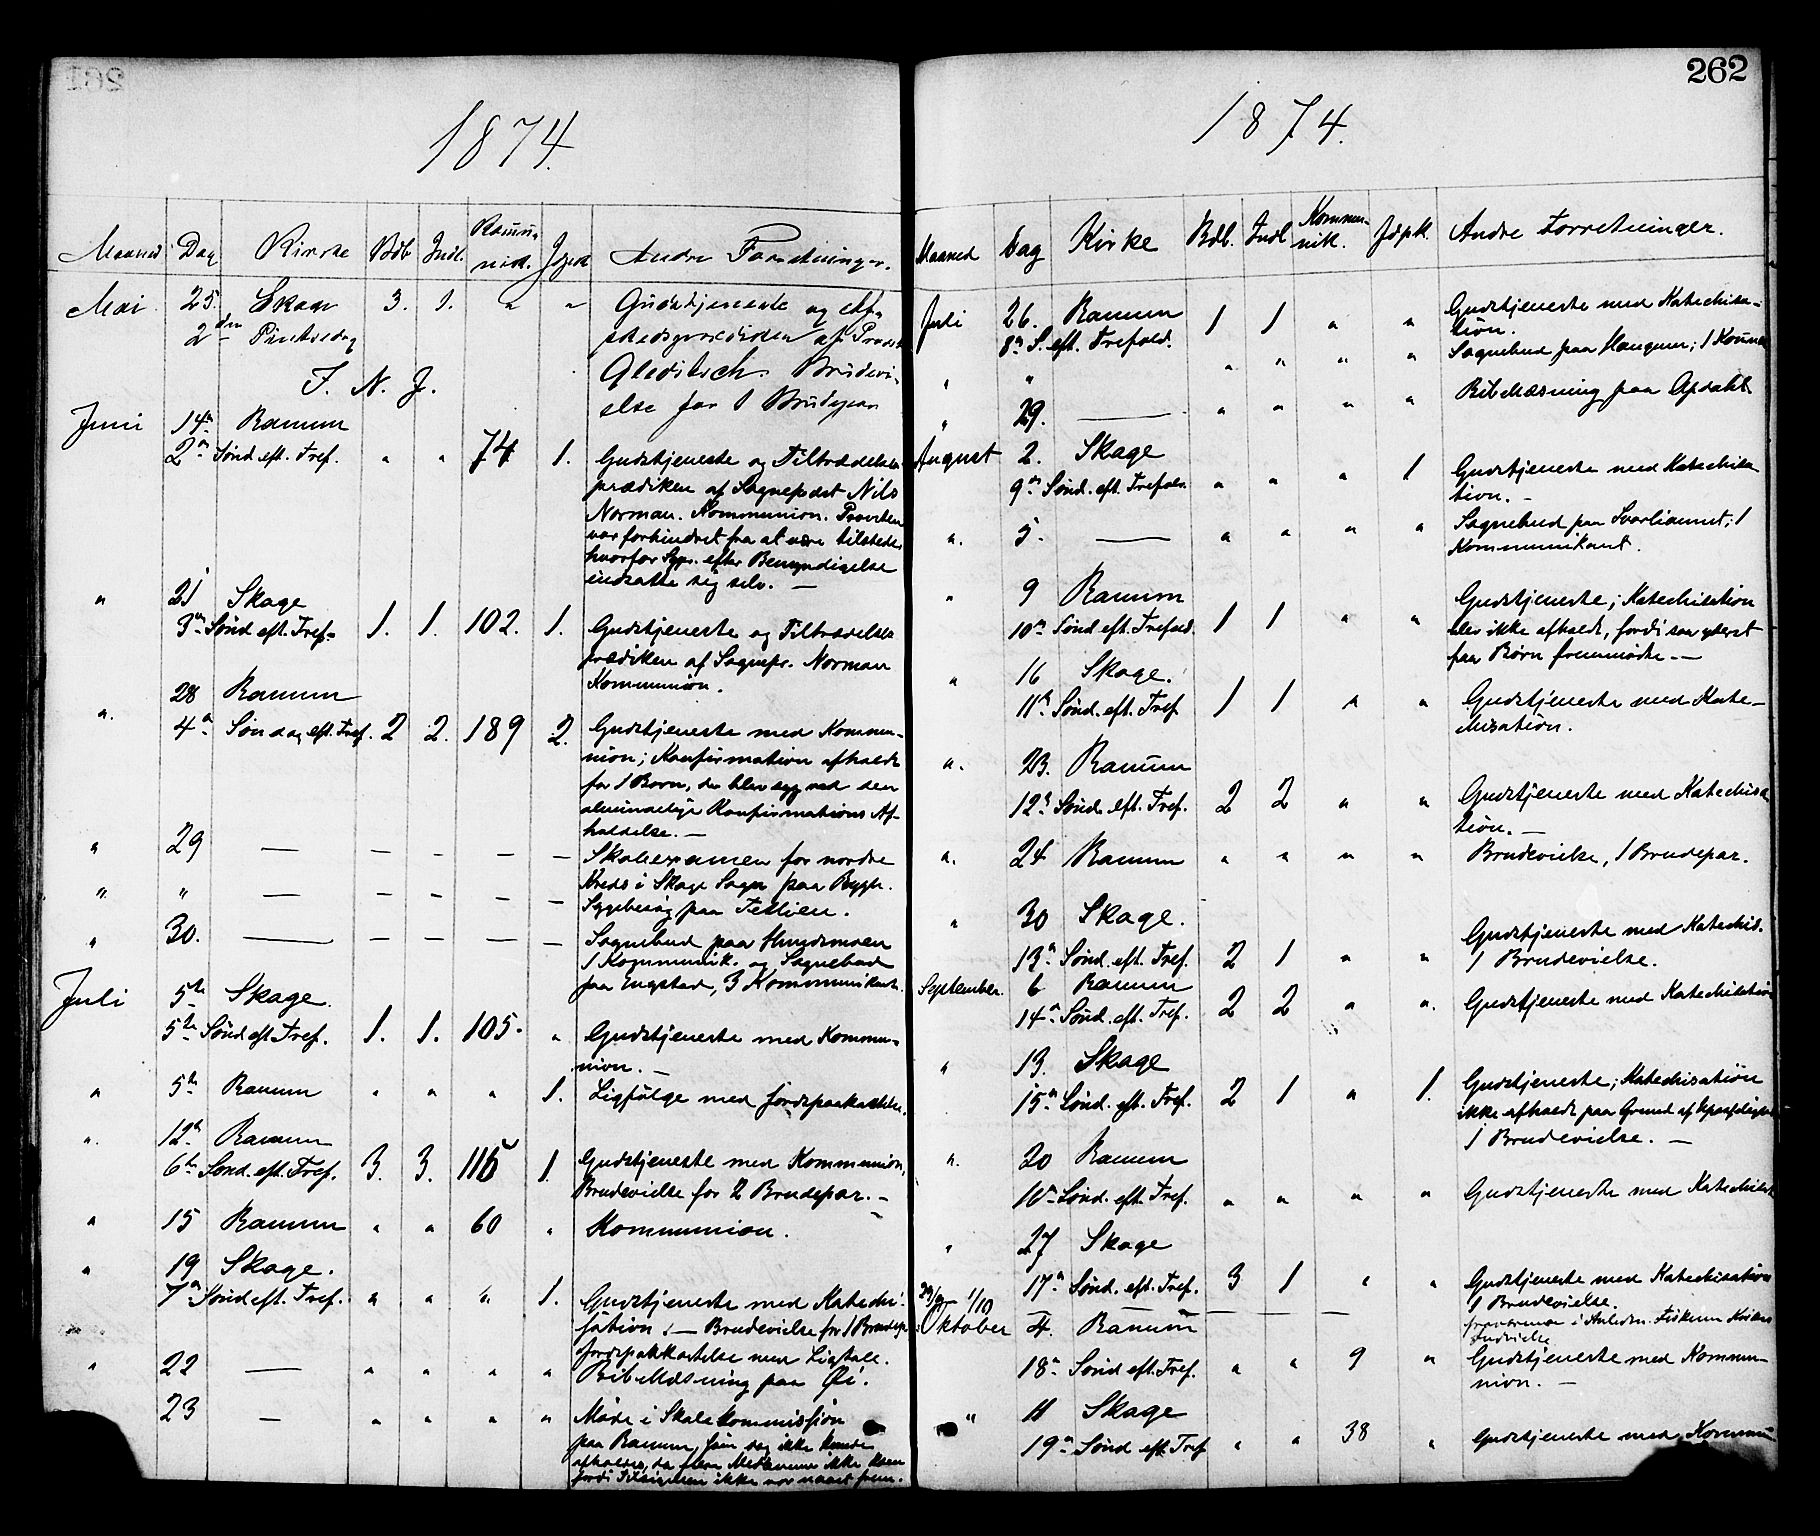 1874.
Maaned Dag Kirke Bdb Indl. Kommunik. Jdpk Andre Forretninger.
Mai 25. Skage 3. 1. " " Gudstjeneste og Af-
2den Pintsedag skedsprædiken af Provst
I. N. J. Gleditsch. Brudevi-
else for 1 Brudepar
Juni 14de Ranum
2den Sønd. eft. Tref. " " 74 1. Gudstjeneste og Tiltrædelses-
prædiken af Sognepræst Nils
Norman. Kommunion. Provsten
var forhindret fra at være tilstede,
hvorfor Sgpr. efter Bemyndigelse
indsatte sig selv. —
" 21 Skage
3die Sønd eft. Tref. 1. 1. 102. 1. Gudstjeneste og Tiltrædelses
prædiken af Sognepr. Norman
Kommunion.
". 28 Ranum
4de Søndag eft. Tref. 2 2. 189 2. Gudstjeneste med Kommu-
nion; Konfirmation afholdt
for 1 Barn, der blev syg ved den
almindelige Konfirmations Af-
holdelse. —
" 29 — — — — — Skoleexamen for nordre
Kreds i Skage Sogn paa Bygh.
" " — — — — — Sygebesøg paa
" 30. — — — — — Sognebud paa Hundsmoen
1 Kommunik. og Sognebud
paa Engstad, 3 Kommunikant.
Juli 5te Skage.
5te Sønd eft. Tref. 1. 1. 105. " Gudstjeneste med Kommu-
nion. —
" 5te Ranum " " " 1. Ligfølge med Jordspaakastelse.
". 12te Ranum
6te Sønd. eft. Tref. 3. 3. 115 1. Gudstjeneste med Kommunion,
Brudevielse for 2 Brudepar. —
" 15 Ranum " " 60 " Kommunion.
" 19 Skage.
7de Sønd eft. Tref. " " " 1. Gudstjeneste med Kateki-
sation. — Brudevielse for 1 Brudep.
Jordspaakastelse med Ligtale.
" 22 — " " " " Bibellæsning paa Øi.
23 — " " " " Møde i Skolekommission
paa Ranum, som dog ikke kunde
afholdes, da flere Medlemmer ikke kom
fordi Tilsigelsen ikke var naaet frem.
262
1874.
Maaned Dag Kirke Bdb. Indl Kommunik. Jdpk. Andre Forretninger.
Juli 26. Ranum 1 1 " " Gudstjeneste med Katechisa-
8de S. eft. Trefold. tion.
" " " " " " Sognebud paa Haugum; 1 Kommu
" 29. — " " " " Bibellæsning paa Apdahl
August 2. Skage
9de Sønd. eft. Trefold. " " " 1 Gudstjeneste med Katechisa
tion. —
". 5. — " " " " Sognebud paa Svarliaunet; 1
Kommunikant.
" 9 Ranum
10de Sønd eft. Trefold. 1 1 " " Gudstjeneste; Katechisation
blev ikke afholdt, fordi saa yderst
faa Børn fremmødte. —
" 16 Skage.
11te Sønd. eft. Tref 1 1 " " Gudstjeneste med Kate-
chisation.
". 23. Ranum
12te Sønd. eft. Tref. 2 2 " " Gudstjeneste med Katechisa
tion. —
". 24 Ranum " " " " Brudevielse, 1 Brudepar.
" 30 Skage.
13de Sønd. eft. Tref. 2 1 " " Gudstjeneste med Katechis.
1 Brudevielse.
September. 6 Ranum
14de Sønd. eft. Tref. 2 2 " ". Gudstjeneste med Katechisation
" 13. Skage
15de Sønd. eft. Tref. 2 1 " 1. Gudstjeneste; Katechisation
ikke afholdt paa Grund af Upasselighed
1 Brudevielse. —
". 20 Ranum
16de Sønd. eft. Tref. " " " " Gudstjeneste med Katechisat
" 27 Skage
17de Sønd. eft. Tref. 3 1 " " Gudstjeneste med Katechisation
1 Brudevielse.
29/9 — 1/10 — — — — fraværende i Anledn. Fiskum Kirkes
Indvielse
Oktober 4. Ranum
18de Sønd eft. Tref. " " 9 " Gudstjeneste med Kommu-
nion. —
" 11 Skage
19de Sønd eft. Tref " " 38 " Gudstjeneste med Kommu